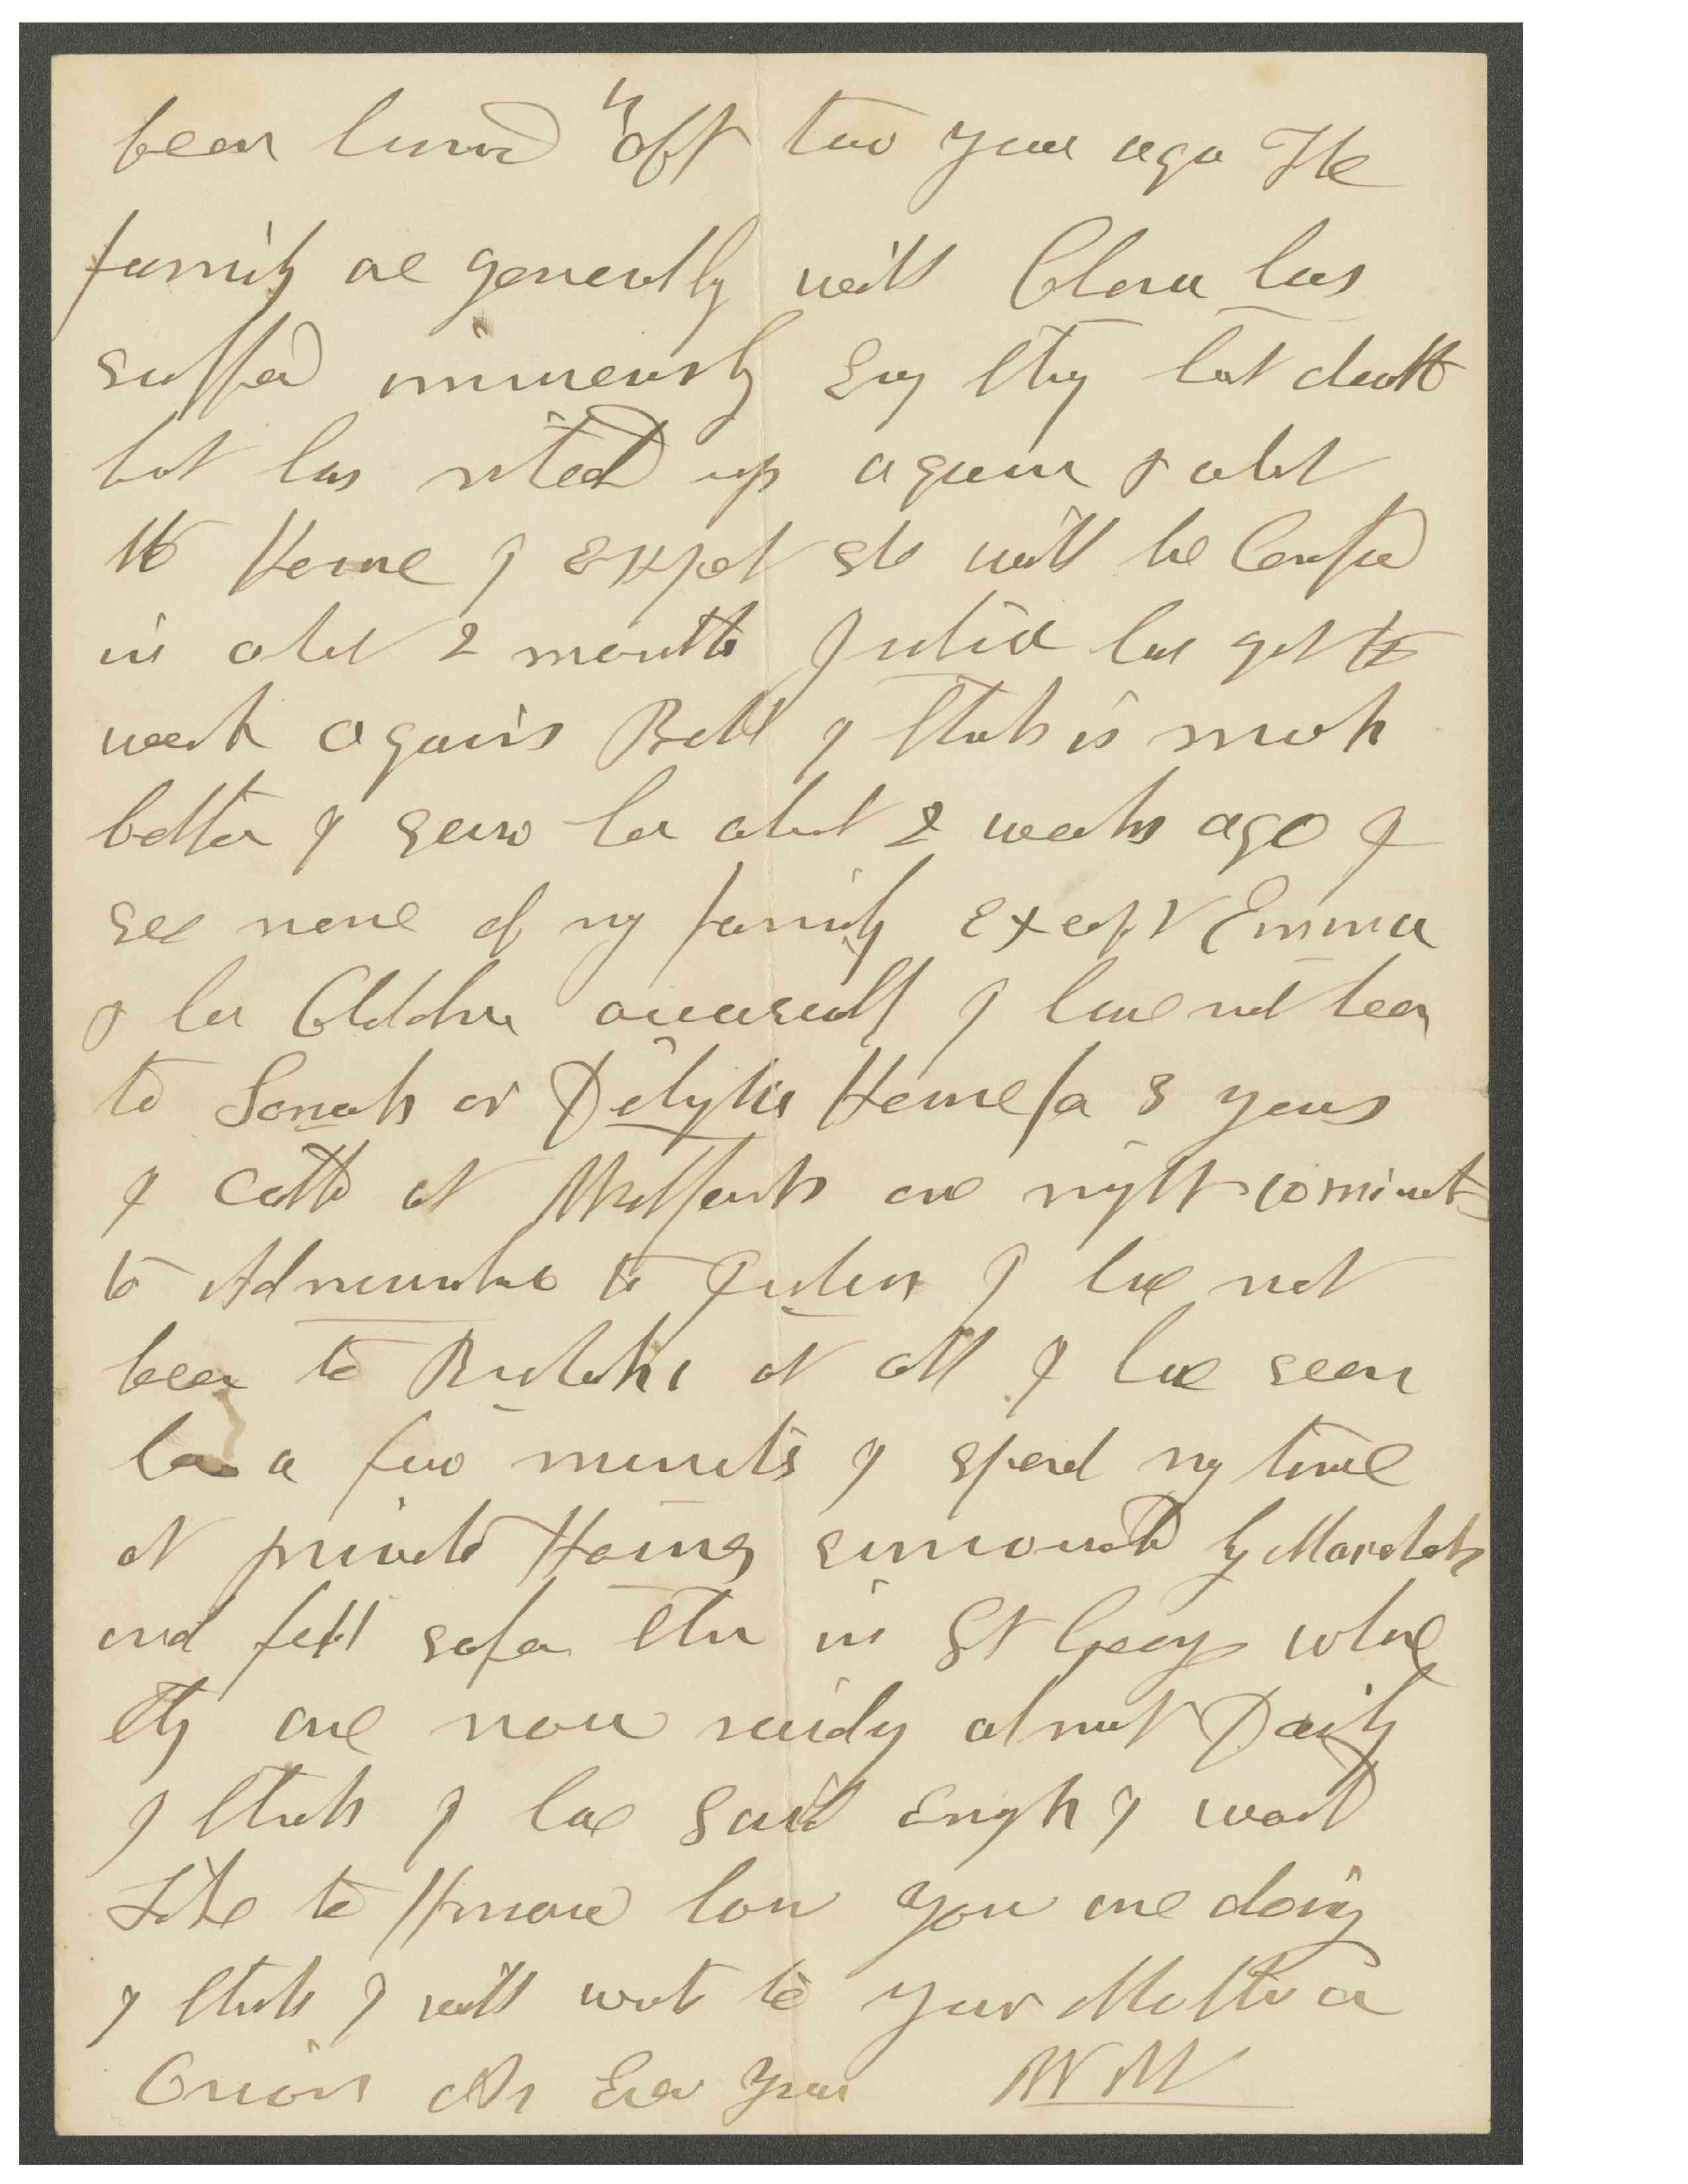 been burned up & left two year ago The
family are generally well Clara has
suffered immensely Evry thing but death
but has rited up again & about
the Home I Expect she will be Confied
in about 2 months Julia has got to
work again Bell I think is much
better I saw her about 2 weeks ago I
see none of my family Except Emma
& her Children occasionally I have not been
to Sarah or Delight Home for 3 years
I called at Milfords one night 10 minuts
to Administer to I have not
been to Beulahs at all I have seen
her a few minuets I spend my time
at private Homes surrounded by Marshals
and feel safer then in St George where
they are now raidig almost Daily
I think I have said Enough I want
Like to Know how you are doing
I think I will write to your Mother
Orion As Ever Yours W W